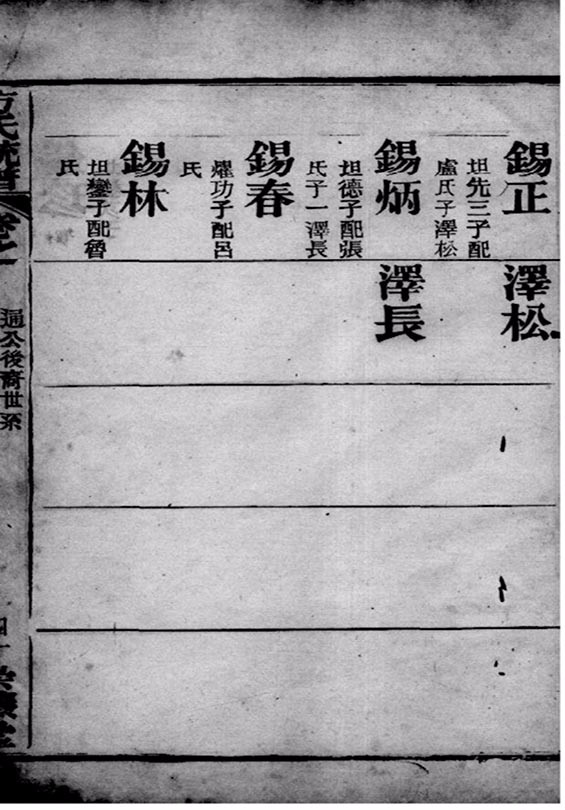 錫正
坦先三子配
盧氏子澤松
錫炳
坦德子配張
氏子一澤長
錫春
燿功子配呂
氏
錫林
坦鑾子配魯
氏
澤松
澤長
方氏統譜
卷之一
逼公後裔世系